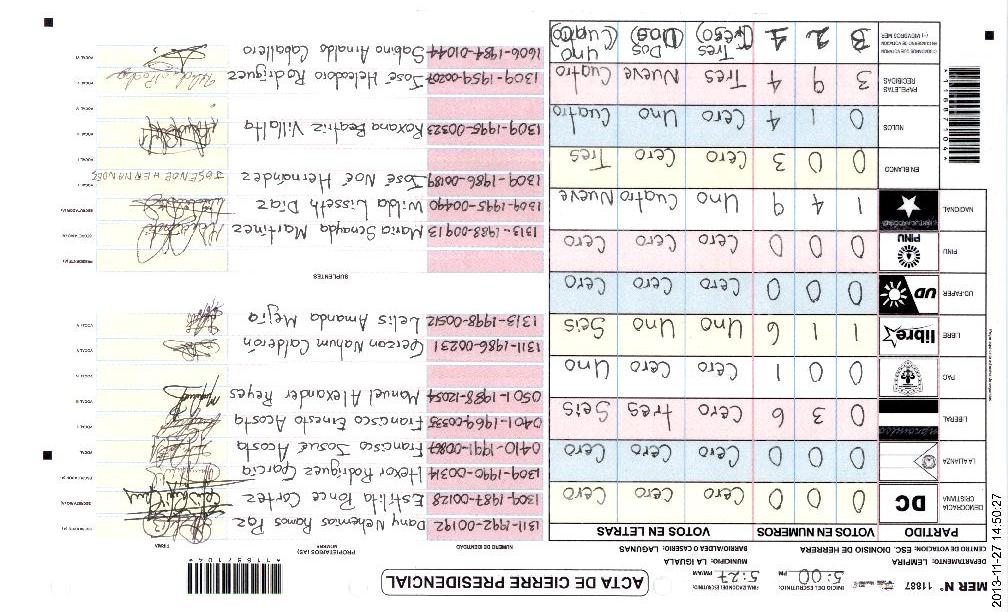 MER N° 11887
ACTA DE CIERRE PRESIDENCIAL
*11887104*
INICIO DEL ESCRUTINIO: 5:00 PM
FINALIZACION DEL ESCRUTINIO: 5:27 PM/AM
DEPARTAMENTO: LEMPIRA
MUNICIPIO: LA IGUALA
CENTRO DE VOTACION: ESC. DIONISIO DE HERRERA
BARRIO/ALDEA O CASERIO: LAGUNAS
PARTIDO VOTOS EN NUMEROS VOTOS EN LETRAS
DEMOCRACIA CRISTIANA DC 0 0 0 Cero Cero Cero
LA ALIANZA 0 0 0 Cero Cero Cero
LIBERAL 0 3 6 Cero tres Seis
PAC 0 0 1 Cero Cero Uno
LIBRE libre 1 1 6 Uno Uno Seis
UD-FAPER UD 0 0 0 Cero Cero Cero
PINU PINU 0 0 0 Cero Cero Cero
NACIONAL 1 4 9 Uno Cuatro Nueve
EN BLANCO 0 0 3 Cero Cero Tres
NULOS 0 1 4 Cero Uno Cuatro
PAPELETAS RECIBIDAS 3 9 4 Tres Nueve Cuatro
3 2 Tres (Tres) Dos (Dos) Uno
NUMERO DE IDENTIDAD PROPIETARIOS (AS) NOMBRE FIRMA
1311-1982-00192 Dany Nehemias Ramos Paz
1309-1987-00128 Estfilita Ponce Cortez
1309-1990-00314 Hexor Rodriguez García
0410-1991-00867 Francisco Josué Acosta
0401-1969-00535 Francisco Ernesto Acosta
0501-1988-12054 Manuel Alexander Reyes
1311-1986-00231 Gerzon Nahum Calderón
1313-1998-00512 Lelis Amanda Mejia
SUPLENTES
1313-1988-00913 Maria Senayda Martinez
1309-1995-00490 Wilda Lisseth Diaz
1309-1986-00189 José Noé Hernández JOSE NOE HERNANDES
1309-1995-00323 Roxana Beatriz Villalta
1309-1959-00207 José Heleodoro Rodriguez
1606-1984-01044 Sabino Arnaldo Caballero
*11887104*
2013-11-27 14:50:27